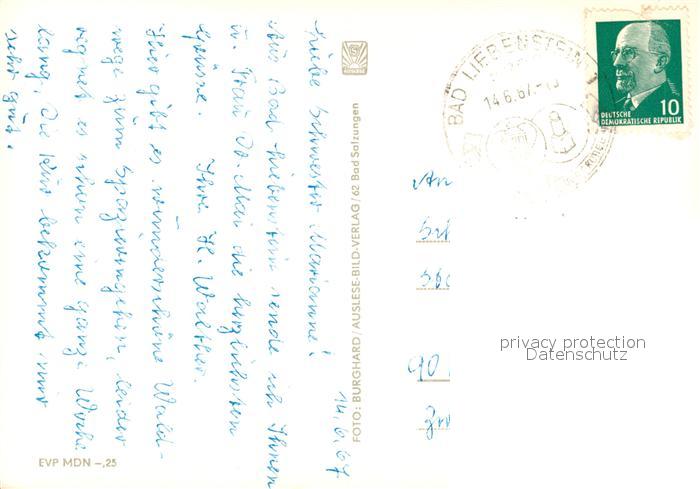 14.6.67
Liebe Schwester Marianne!
Aus Bad Liebenstein sende ich Ihnen
u. Frau Dr. Mai die herzlichsten
Grüsse. Ihre H. Walther.
Hier gibt es wunderschöne Wald-
wege zum Spazierengehen, leider
regnet es schon eine ganze Woche
lang. Die Kur bekommt mir
sehr gut.
EVP MDN –,25
AUSLESE
FOTO: BURGHARD/AUSLESE-BILD-VERLAG/62 Bad Salzungen
BAD LIEBENSTEIN 1
14.6.67
10
DEUTSCHE
DEMOKRATISCHE REPUBLIK
An
90
privacy protection
Datenschutz